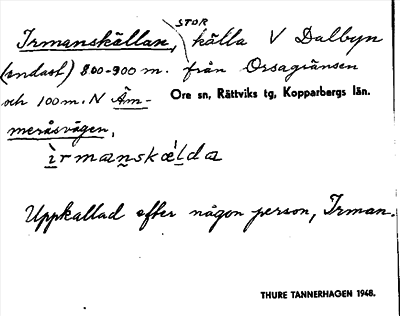 Irmanskällan, STOR källa V Dalbyn
(endast) 800-900 m. från Orsagränsen
och 100 m. N Äm- Ore sn, Rättviks tg, Kopparbergs län.
meråsvägen.
irmanskælda
Uppkallad efter någon person, Irman.
THURE TANNERHAGEN 1948.